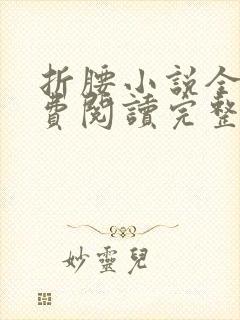 折腰小說全
費閱讀完整
妙靈兒